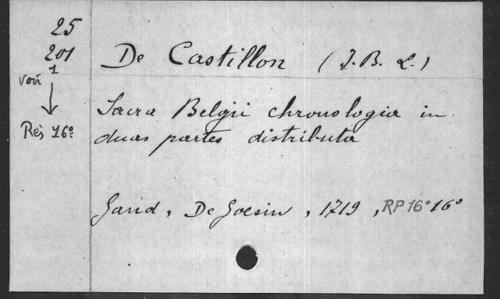 25
201
1
De Castillon (J. B. L.)
voir
Sacra Belgii chronologia in
Rés 16º
duas partes distributa
Gand, De Goesin, 1719, RP 16º 16º